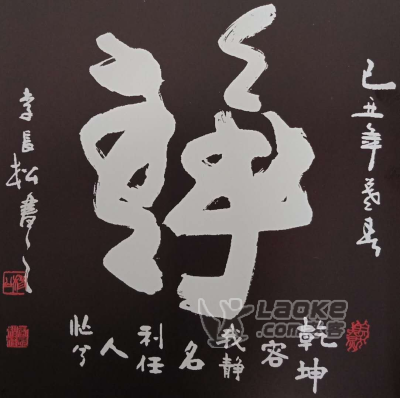 静
己丑年春
乾坤
容
我静
名
利任
人
忙
李長松書
LAOKE
.com